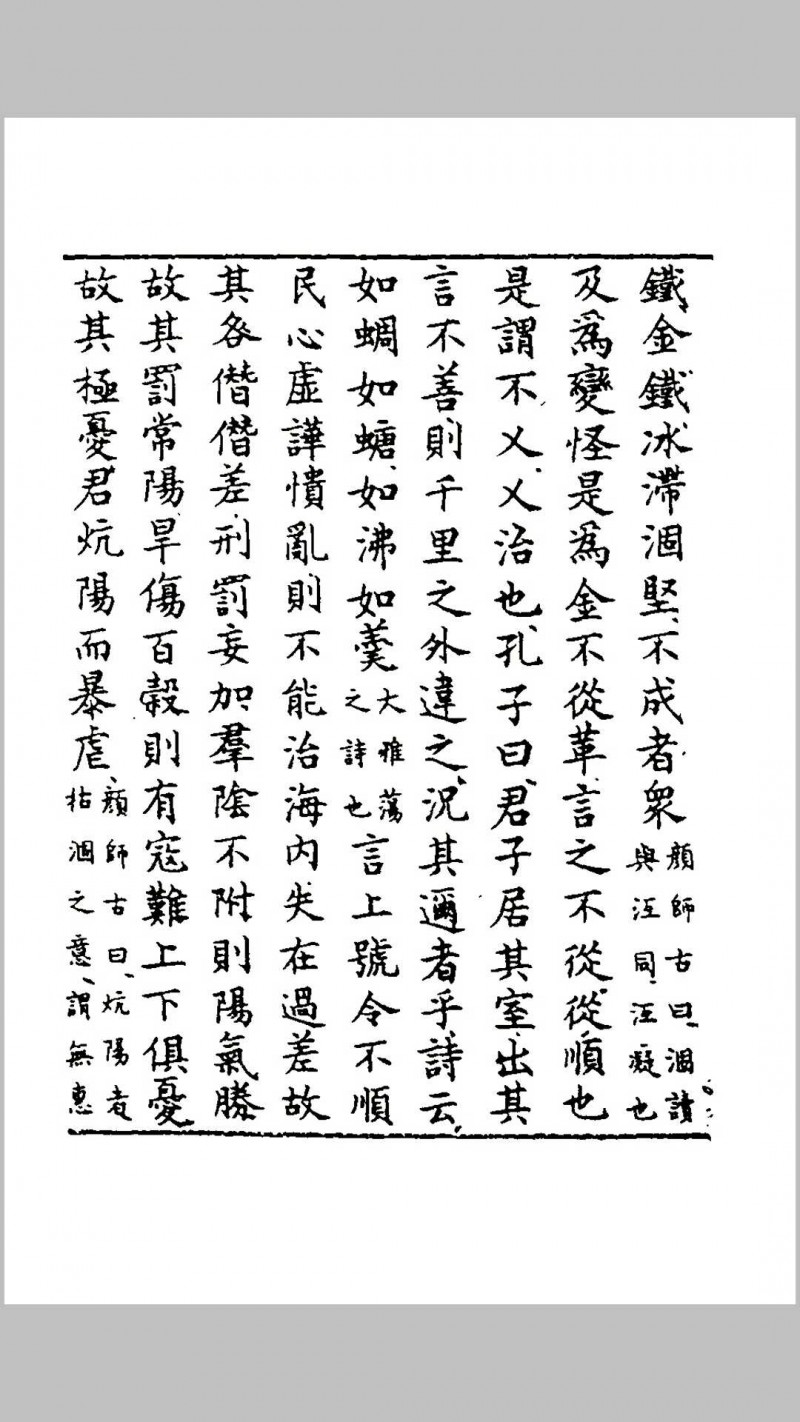 鐵金鐵冰滯涸堅、不成者衆顏師古曰、涸讀與沍同、沍凝也
及爲變怪是爲金不從革言之不從從順也
是謂不乂、乂治也、孔子曰、君子居其室出其
言不善、則千里之外違之、況其邇者乎、詩云、
如蜩如螗、如沸如羹大雅蕩之詩也言上號令不順
民心虛譁憒亂則不能治海內失在過差故
其咎僭僭差刑罰妄加羣陰不附則陽氣勝
故其罰常陽旱傷百穀則有寇難上下俱憂
故其極憂君炕陽而暴虐、顏師古曰、炕陽者枯涸之意、謂無惠